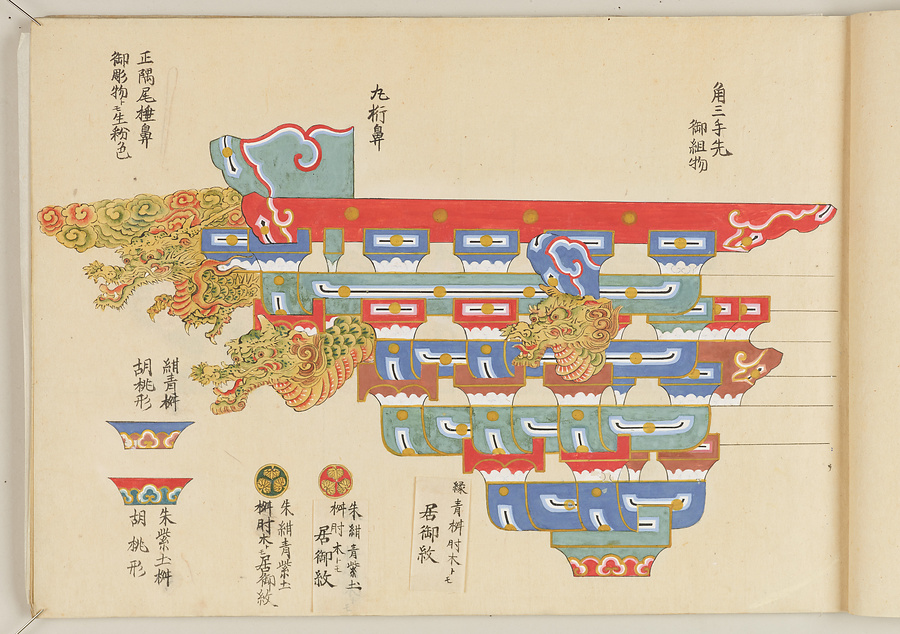 角三手先
御組物
丸桁鼻
正隅尾棰鼻
御彫物トモ生粉色
紺青桝
胡桃形
朱紫土桝
胡桃形
緑青桝肘木トモ
居御紋
朱紺青紫土
桝肘木トモ
居御紋
朱紺青紫土
桝肘木トモ居御紋